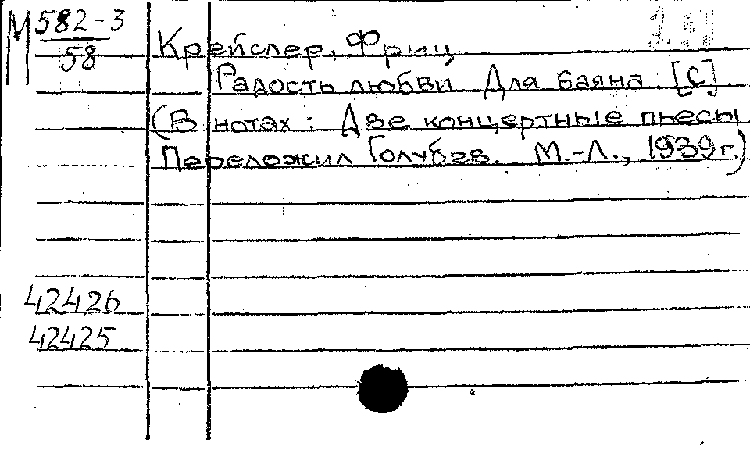 М 582-3
58
Крейслер, Фриц
Радость любви. Для баяна [С]
(В нотах: Две концертные пьесы
Переложил Голубев. М.-Л., 1939г.)
42426
42425